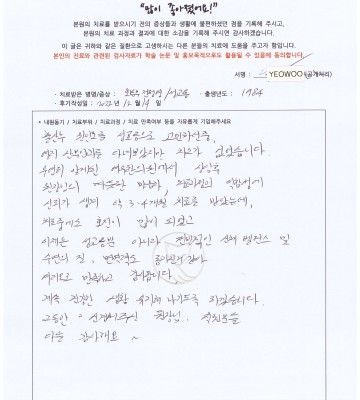 "많이 좋아졌어요!"
본원의 치료를 받으시기 전의 증상들과 생활에 불편하셨던 점을 기록해 주시고,
본원의 치료 과정과 결과에 대한 소감을 기록해 주시면 감사하겠습니다.
이 글은 귀하와 같은 질환으로 고생하시는 다른 분들의 치료에 도움을 주고자 함입니다.
본인의 진료와 관련된 검사자료가 학술 논문 및 홍보목적으로도 활용될 수 있음에 동의합니다.
서명 : YEOWOO (공개처리)
· 치료받은 병명/증상 : /성교통 · 출생년도 : 1984
· 후기작성일 : 2022년 12월 14일
* 내원동기 / 치료부위 / 치료과정 / 치료 만족여부 등을 자유롭게 기입해주세요
성교통으로 고민하던중,
여러 산부인과를 다녀보았지만 차도가 없었습니다.
우연히 알게된 여우한의원에서 상담후
원장님의
신뢰가 생겨 약 3-4개월 치료를 받았는데,
치료중에도 호전이 많이 되었고
이제는 성교통뿐 아니라 전반적인 신체 밸런스 및
수면의 질, 면역력도 좋아진거 같아
여러모로 만족하고 감사합니다.
계속 건강한 생활 유지해 나가도록 하겠습니다.
그동안 신경써주신 원장님, 직원분들
다들 감사해요 ~